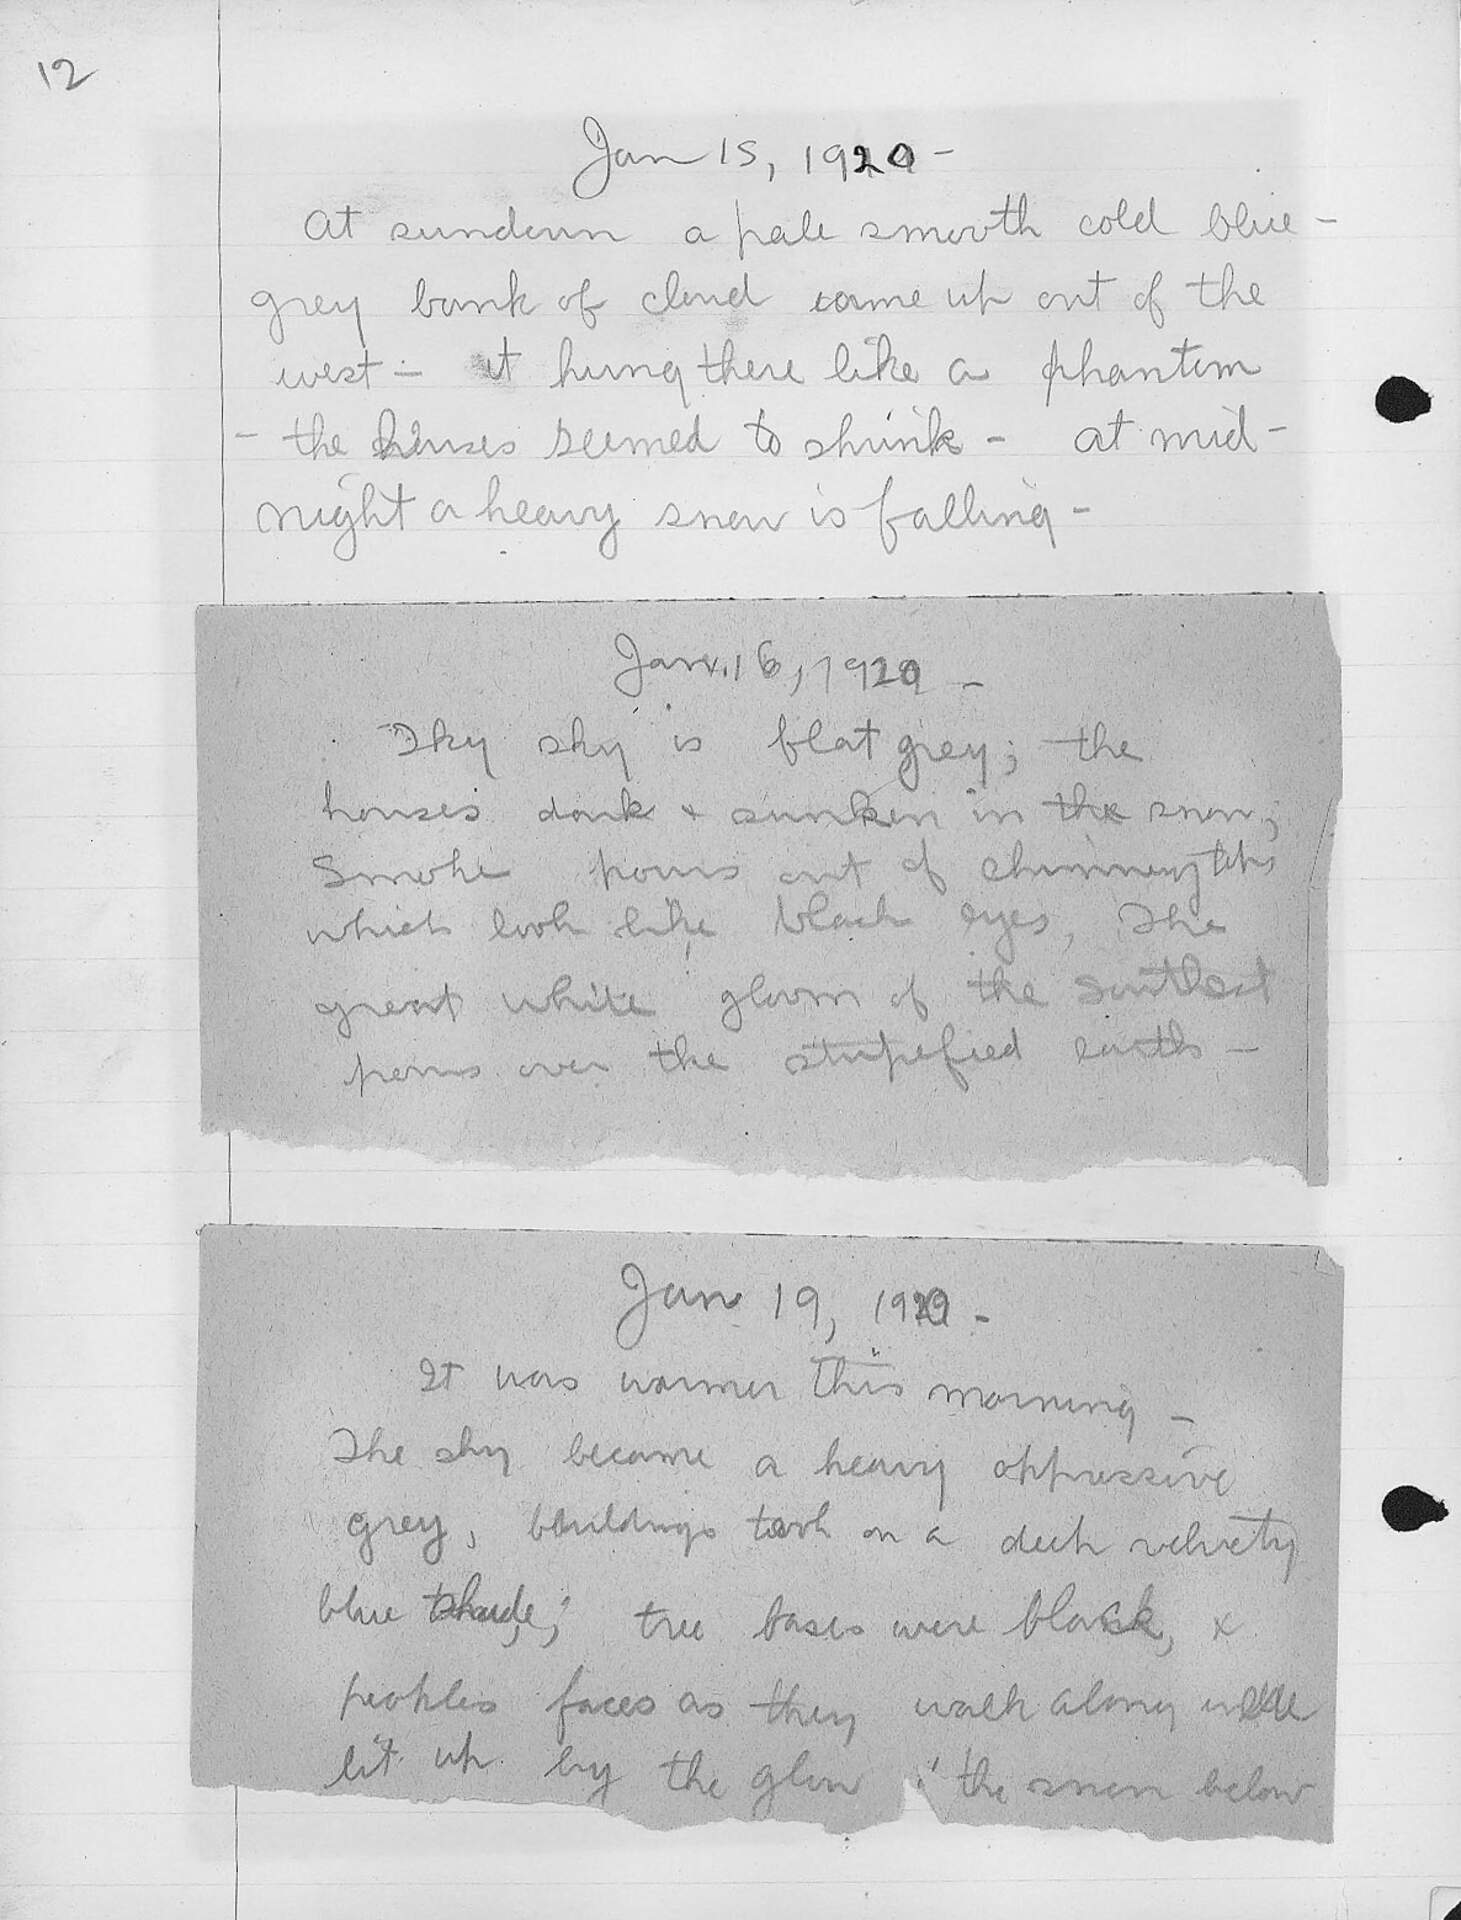 12
Jan 15, 1920 -
At sundown a pale smooth cold blue-
grey bank of cloud came up out of the
west - it hung there like a phantom
- the houses seemed to shrink - at mid-
night a heavy snow is falling -
Jan. 16, 1920 -
Sky sky is flat grey; the
houses dark + sunken in the snow;
Smoke pours out of chimney tops
which look like black eyes, The
great white gloom of the
pours over the stupefied earth -
Jan 19, 1920 -
It was warmer this morning -
The sky became a heavy oppressive
grey, buildings took on a deep velvety
blue shade; tree bases were black, +
peoples faces as they walk along were
lit up by the glow the snow below